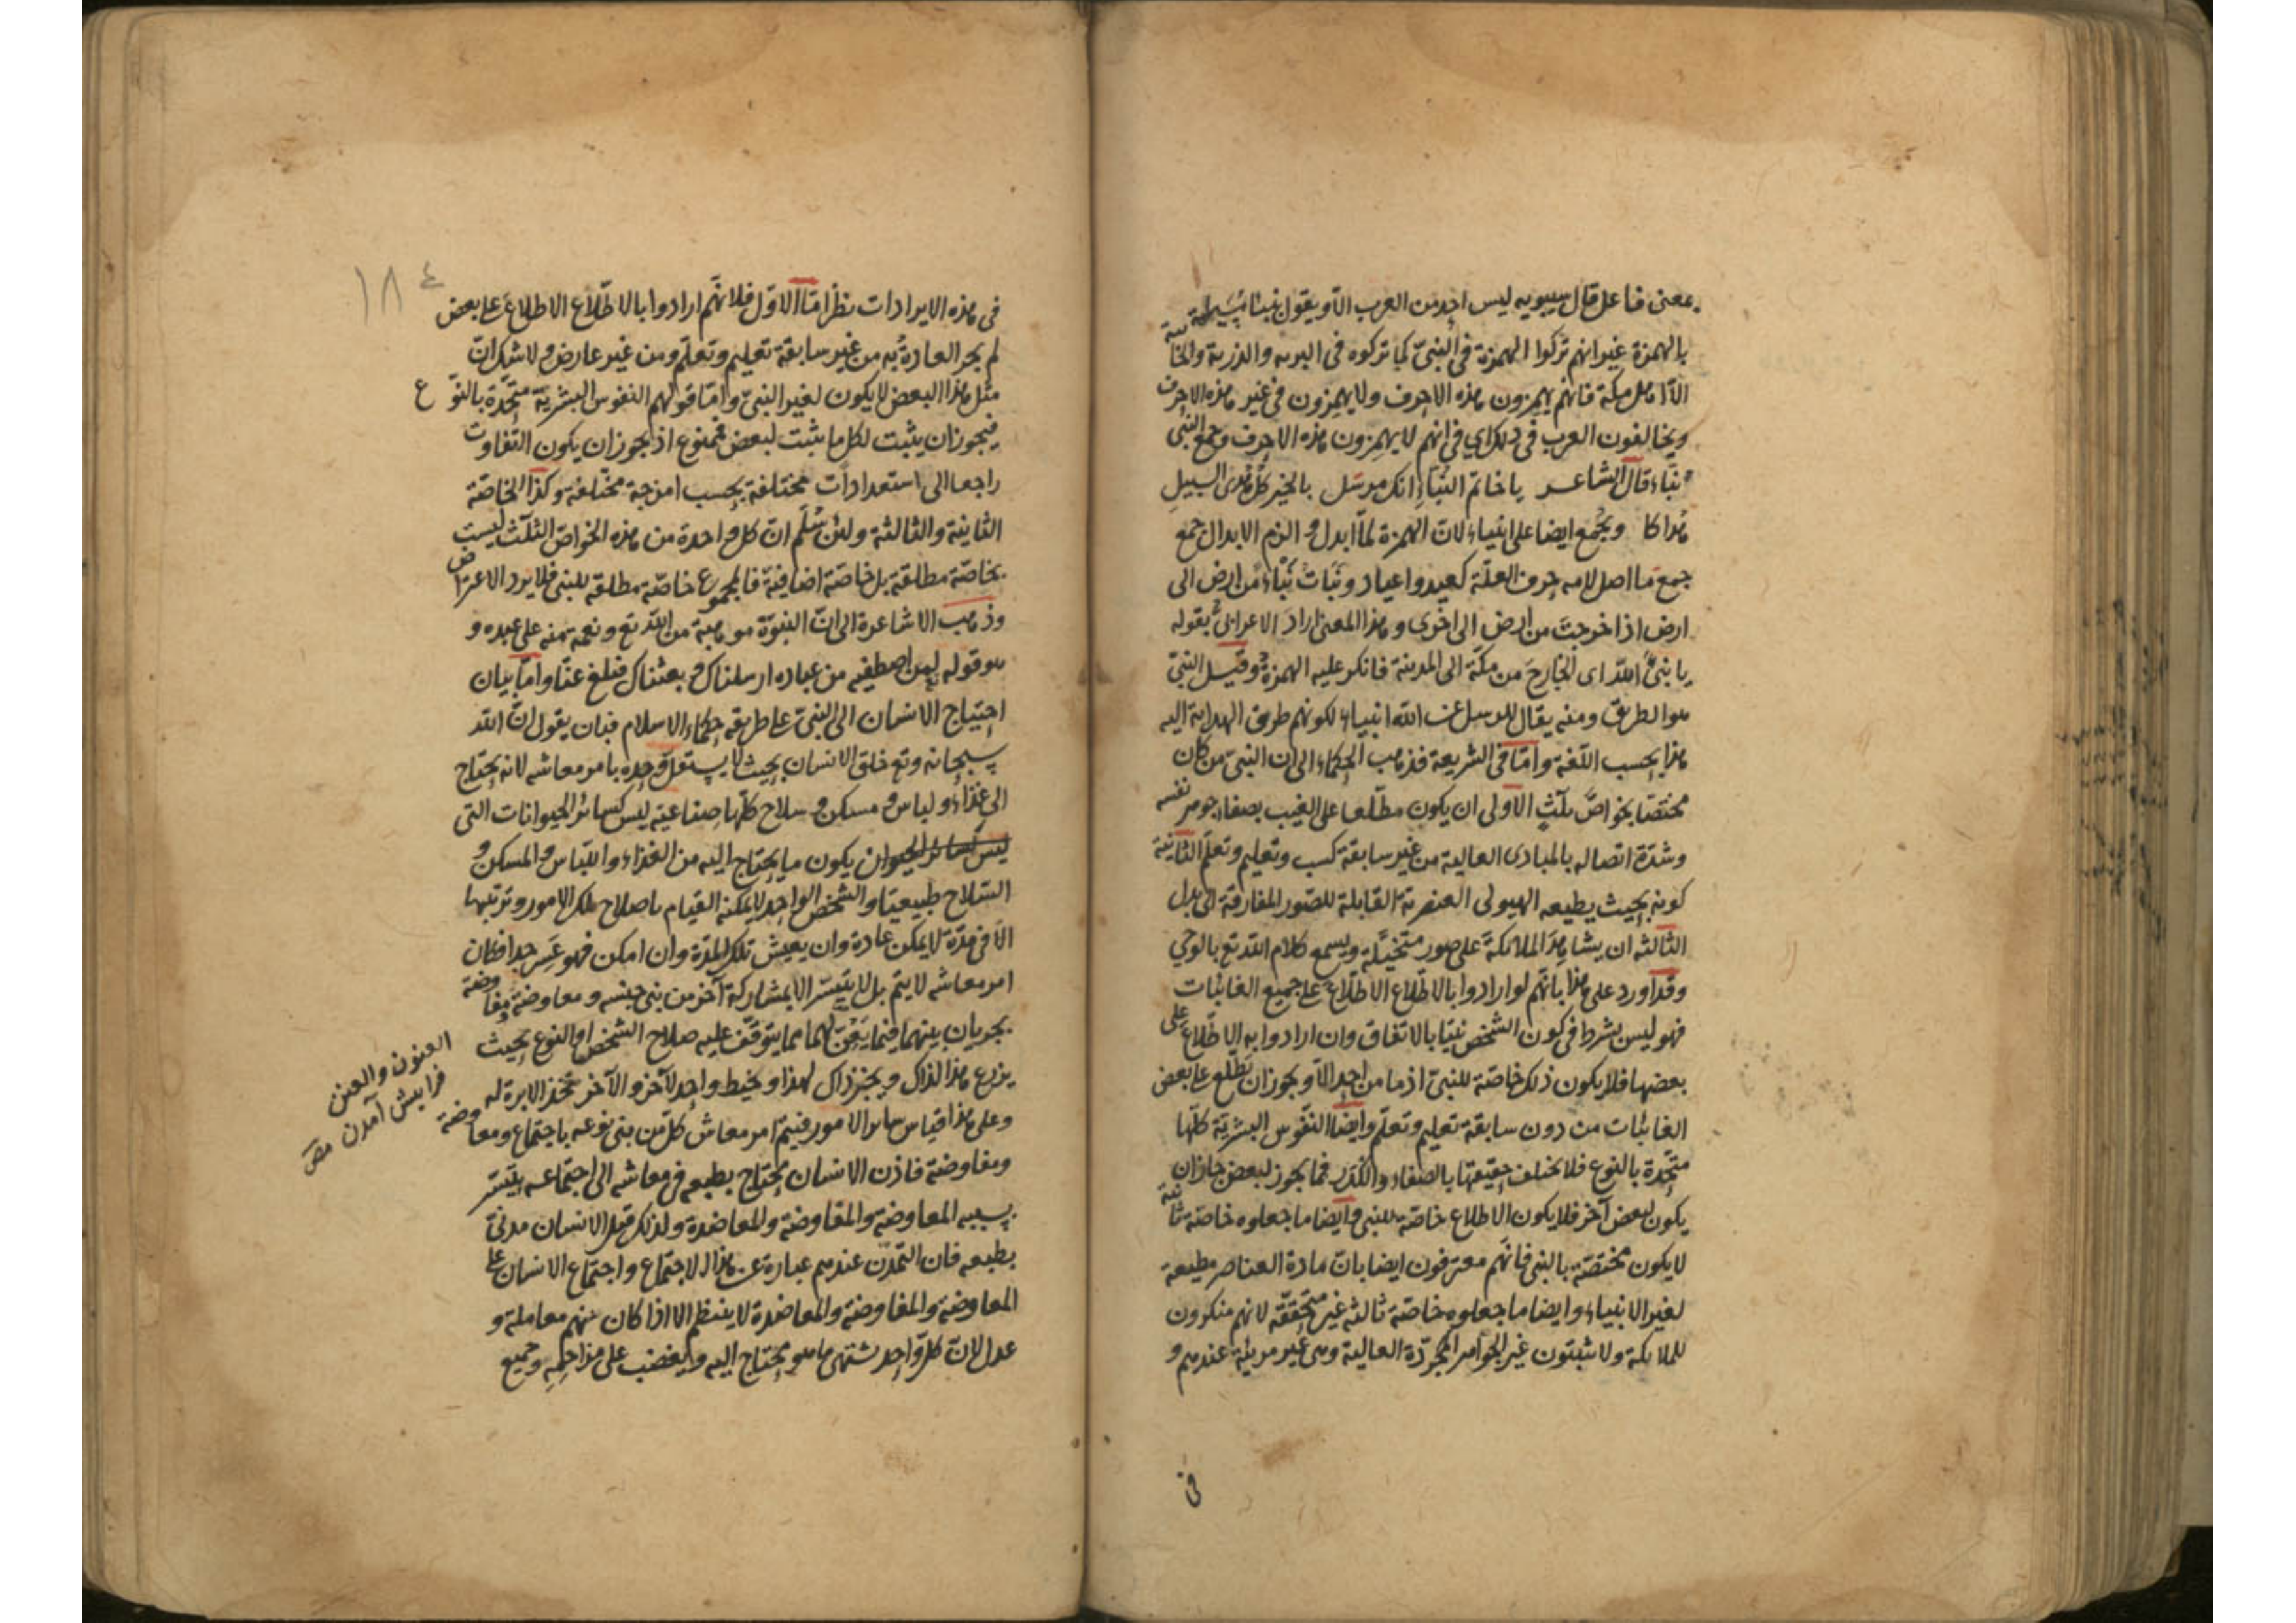 بمعنى فاعل قال سيبويه ليس احد من العرب الا ويقول تنبأ مسيلمة
بالهمزة غير انهم تركوا الهمزة في النبيّ كما تركوه في البرية والذرية والخابية
الّا اهل مكة فانهم يهمزون هذه الاحرف ولا يهمزون في غير هذه الاحرف
ويخالفون العرب في ذلك اي في انهم لا يهمزون هذه الاحرف وجمع النبى
نبّاء قال الشاعر يا خاتم النبّاء انك مرسل بالخير كل هدى السبيل
هداكا ويُجمع ايضا على انبياء لان الهمزة لما ابدل و الزم الابدال جمع
جمع ما اصل لامه حرف العلّة كعيد واعياد ونبأت نبّاء من ارض الى
ارض اذا خرجت من ارض الى اخرى وهذا المعنى اراد الاعرابىّ بقوله
يا نبئ اللّه اى الخارج من مكّة الى المدينة فانكر عليه الهمزة وقيل النبىّ
هو الطريق ومنه يقال للرسل عن اللّه انبياء لكونهم طريق الهداية اليه
هذا بحسب اللّغة وامّا في الشريعة فذهب الحكماء الى ان النبىّ من كان
مختصّا بخواصّ ثلٰث الاولى ان يكون مطّلعا على الغيب بصفاء جوهر نفسه
وشدّة اتصاله بالمبادى العالية من غير سابقة كسب وتعليم وتعلّم الثانية
كونه بحيث يطيعه الهيولى العنصرية القابلة للصّور المفارقة الى بدل
الثالثه ان يشاهد الملائكة على صور متخيّلة ويسمع كلام اللّه تع بالوحي
وقد اورد على هذا بانّهم لو ارادوا بالاطّلاع الاطّلاع على جميع الغائبات
فهو ليس بشرط في كون الشخص نبيّا بالاتفاق وان ارادوا به الاطّلاع على
بعضها فلا يكون ذلك خاصّة للنبىّ اذ ما من احد الّا ويجوز ان يطّلع على بعض
الغائبات من دون سابقة تعليم وتعلّم وايضا النفوس البشريّة كلّها
متّحدة بالنوع فلا يختلف حقيقتها بالصفاء والكدر فما يجوز لبعض جاز ان
يكون لبعض آخر فلا يكون الاطلاع خاصّة للنبى وايضا ما جعلوه خاصّة ثانية
لا يكون مختصّة بالنبى فانّهم معترفون ايضا بانّ مادة العناصر مطيعة
لغير الانبياء وايضا ما جعلوه خاصّة ثالثة غير متحققّة لانهم منكرون
للملائكة ولا يثبتون غير الجواهر المجرّدة العالية وهى غير مرئيّة عندهم و
في
١٨٤
في هذه الايرادات نظر امّا الاوّل فلانّهم ارادوا بالاطّلاع الاطلاع على بعض
لم يجر العادة به من غير سابقة تعليم وتعلّم ومن غير عارض ولا شك ان
مثل هذا البعض لا يكون لغير النبىّ وامّا قولهم النفوس البشرية متّحدة بالنوع
فيجوز ان يثبت لكل ما يثبت لبعض فممنوع اذ يجوز ان يكون التفاوت
راجعا الى استعدادات مختلفة بحسب امزجة مختلفة وكذا الخاصّة
الثانية والثالثة ولئن سُلّم انّ كل واحدة من هذه الخواصّ الثلٰث ليست
بخاصّة مطلقة بل خاصّة اضافية فالمجموع خاصّة مطلقة للنبى فلا يرد الاعتراض
وذهب الاشاعرة الى انّ النبوّة موهبة من اللّه تع ونعمة منه على عبده و
هو قوله لمن اصطفيه من عباده ارسلناك و بعثناك فبلغ عنّا وامّا بيان
احتياج الانسان الى النبىّ على طريقة حكماء الاسلام فبان يقول انّ اللّه
سبحانه وتع خلق الانسان بحيث لا يستقل وحده بامر معاشه لانه يحتاج
الى غذاء ولباس و مسكن و سلاح كلّها صناعية ليس كسائر الحيوانات التى
ليس كسائر الحيوان يكون ما يحتاج اليه من الغذاء واللّباس و المسكن و
السّلاح طبيعيّا والشخص الواحد لا يمكنه القيام باصلاح تلك الامور وترتيبها
الّا في مدّة لا يمكن عادة وان يعيش تلك المدّة وان امكن فهو عَسِر جدا فكان
امر معاشه لا يتم بل لا يتيسّر الا بمشاركة آخر من بنى جنسه و معاوضة ومفاوضة
يجريان بينهما فيما يَعنّ لهما مما يتوقّف عليه صلاح الشخص او النوع بحيث
يزرع هذا لذاك و يخبز ذاك لهذا و يخيط واحد لآخر والآخر يتّخذ الابرة له
وعلى هذا قياس سائر الامور فيتمّ امر معاش كلّ من بنى نوعه باجتماع ومعاوضة
ومفاوضة فاذن الانسان يحتاج بطبعه في معاشه الى اجتماع يتيسّر
بسببه المعاوضة والمفاوضة والمعاضدة ولذلك قيل الانسان مدنىّ
بطبعه فان التمدّن عندهم عبارة عن هذا الاجتماع و اجتماع الانسان على
المعاوضة والمفاوضة والمعاضدة لا ينتظم الا اذا كان بينهم معاملة و
عدل لانّ كلّ واحد يشتهى ما هو يحتاج اليه ويغضب على مزاحمِهِ وجميع
العنون والعنن
فرا پيش آمدن مص